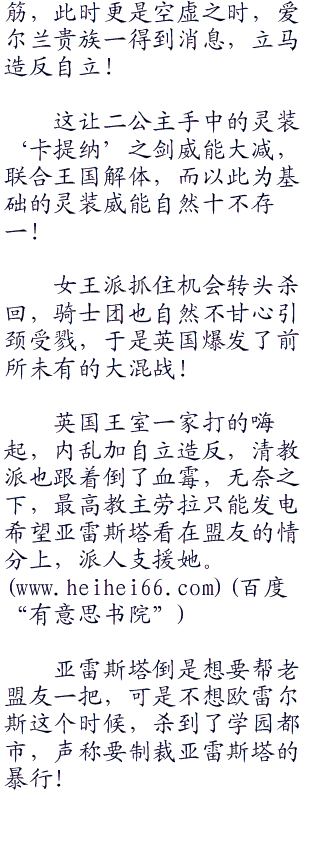 筋，此时更是空虚之时，爱
尔兰贵族一得到消息，立马
造反自立！
这让二公主手中的灵装
‘卡提纳’之剑威能大减，
联合王国解体，而以此为基
础的灵装威能自然十不存
一！
女王派抓住机会转头杀
回，骑士团也自然不甘心引
颈受戮，于是英国爆发了前
所未有的大混战！
英国王室一家打的嗨
起，内乱加自立造反，清教
派也跟着倒了血霉，无奈之
下，最高教主劳拉只能发电
希望亚雷斯塔看在盟友的情
分上，派人支援她。
(www.heihei66.com)(百度
“有意思书院”)
亚雷斯塔倒是想要帮老
盟友一把，可是不想欧雷尔
斯这个时候，杀到了学园都
市，声称要制裁亚雷斯塔的
暴行！